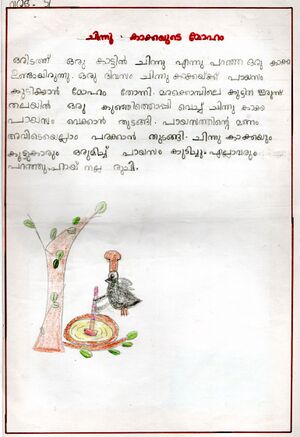 ചിന്നു കാക്കയുടെ മോഹം
ഒരിടത്ത് ഒരു കാട്ടിൽ ചിന്നു എന്നു പറഞ്ഞ ഒരു കാക്ക
ഉണ്ടായിരുന്നു. ഒരു ദിവസം ചിന്നു കാക്കയ്ക്ക് പായസം
കുടിക്കാൻ മോഹം തോന്നി. മരക്കൊമ്പിലെ കൂട്ടിന
തലയിൽ ഒരു കുഞ്ഞിത്തൊപ്പി വെച്ച് ചിന്നു കാക്ക
പായസം വെക്കാൻ തുടങ്ങി. പായസത്തിന്റെ മണം
അവിടെയെല്ലാം പരക്കാൻ തുടങ്ങി. ചിന്നു കാക്കയും
കൂട്ടുകാരും ഒരുമിച്ച് പായസം കുടിച്ചു. എല്ലാവരും
പറഞ്ഞു. ഹായ് നല്ല രുചി.